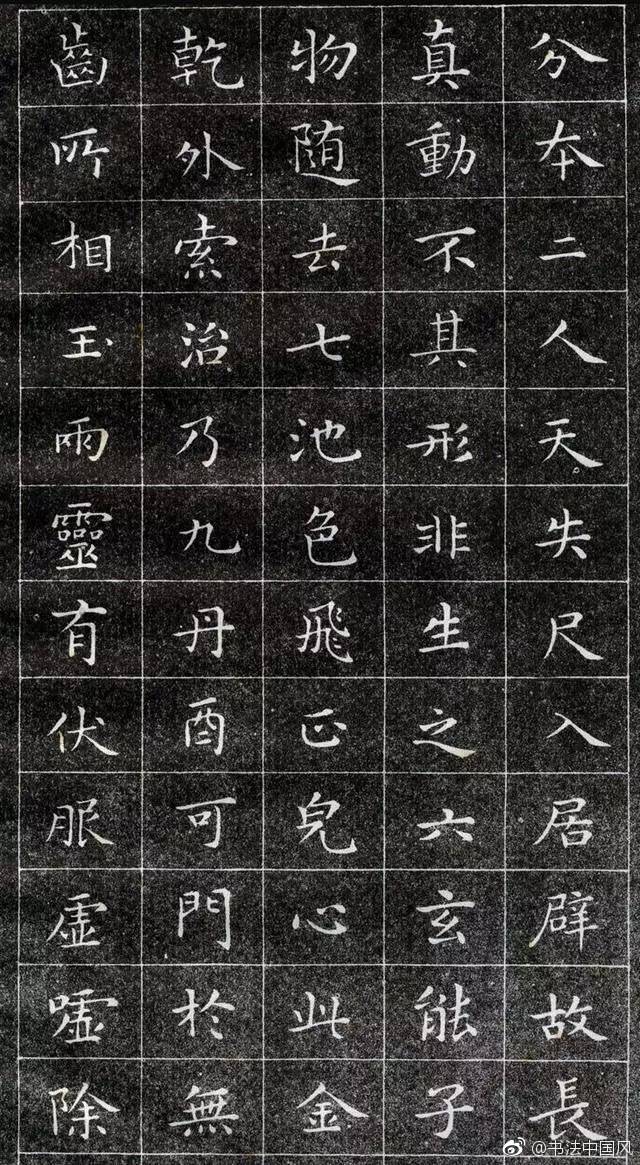 分本二人天失尺入居辟故長
真動不其形非生之六玄能子
物随去七池色飛正兒心此金
乾外索治乃九丹酉可門於無
齒所相玉雨靈有伏服虛嘘除
@书法中国风